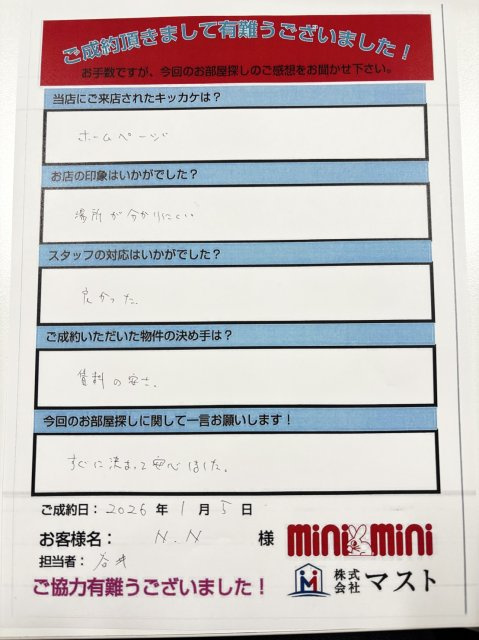 ご成約頂きまして有難うございました！
お手数ですが、今回のお部屋探しのご感想をお聞かせ下さい。
当店にご来店されたキッカケは？
ホームページ
お店の印象はいかがでした？
場所が分かりにくい
スタッフの対応はいかがでした？
良かった。
ご成約いただいた物件の決め手は？
賃料の安さ。
今回のお部屋探しに関して一言お願いします！
すぐに決まって安心しました。
ご成約日：2026 年 1 月 5 日
お客様名： N.N 様
mini mini
担当者：
株式会社 マスト
ご協力有難うございました！